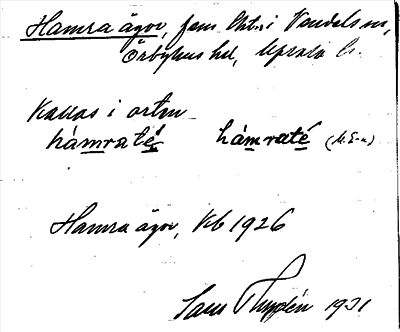 Hamra ägor, fem lht. i Vendels sn,
Örbyhus hd, Uppsala l.
Kallas i orten
hámraté hámraté (M.E-n)
Hamra ägor, Kb 1926
Sam 1931